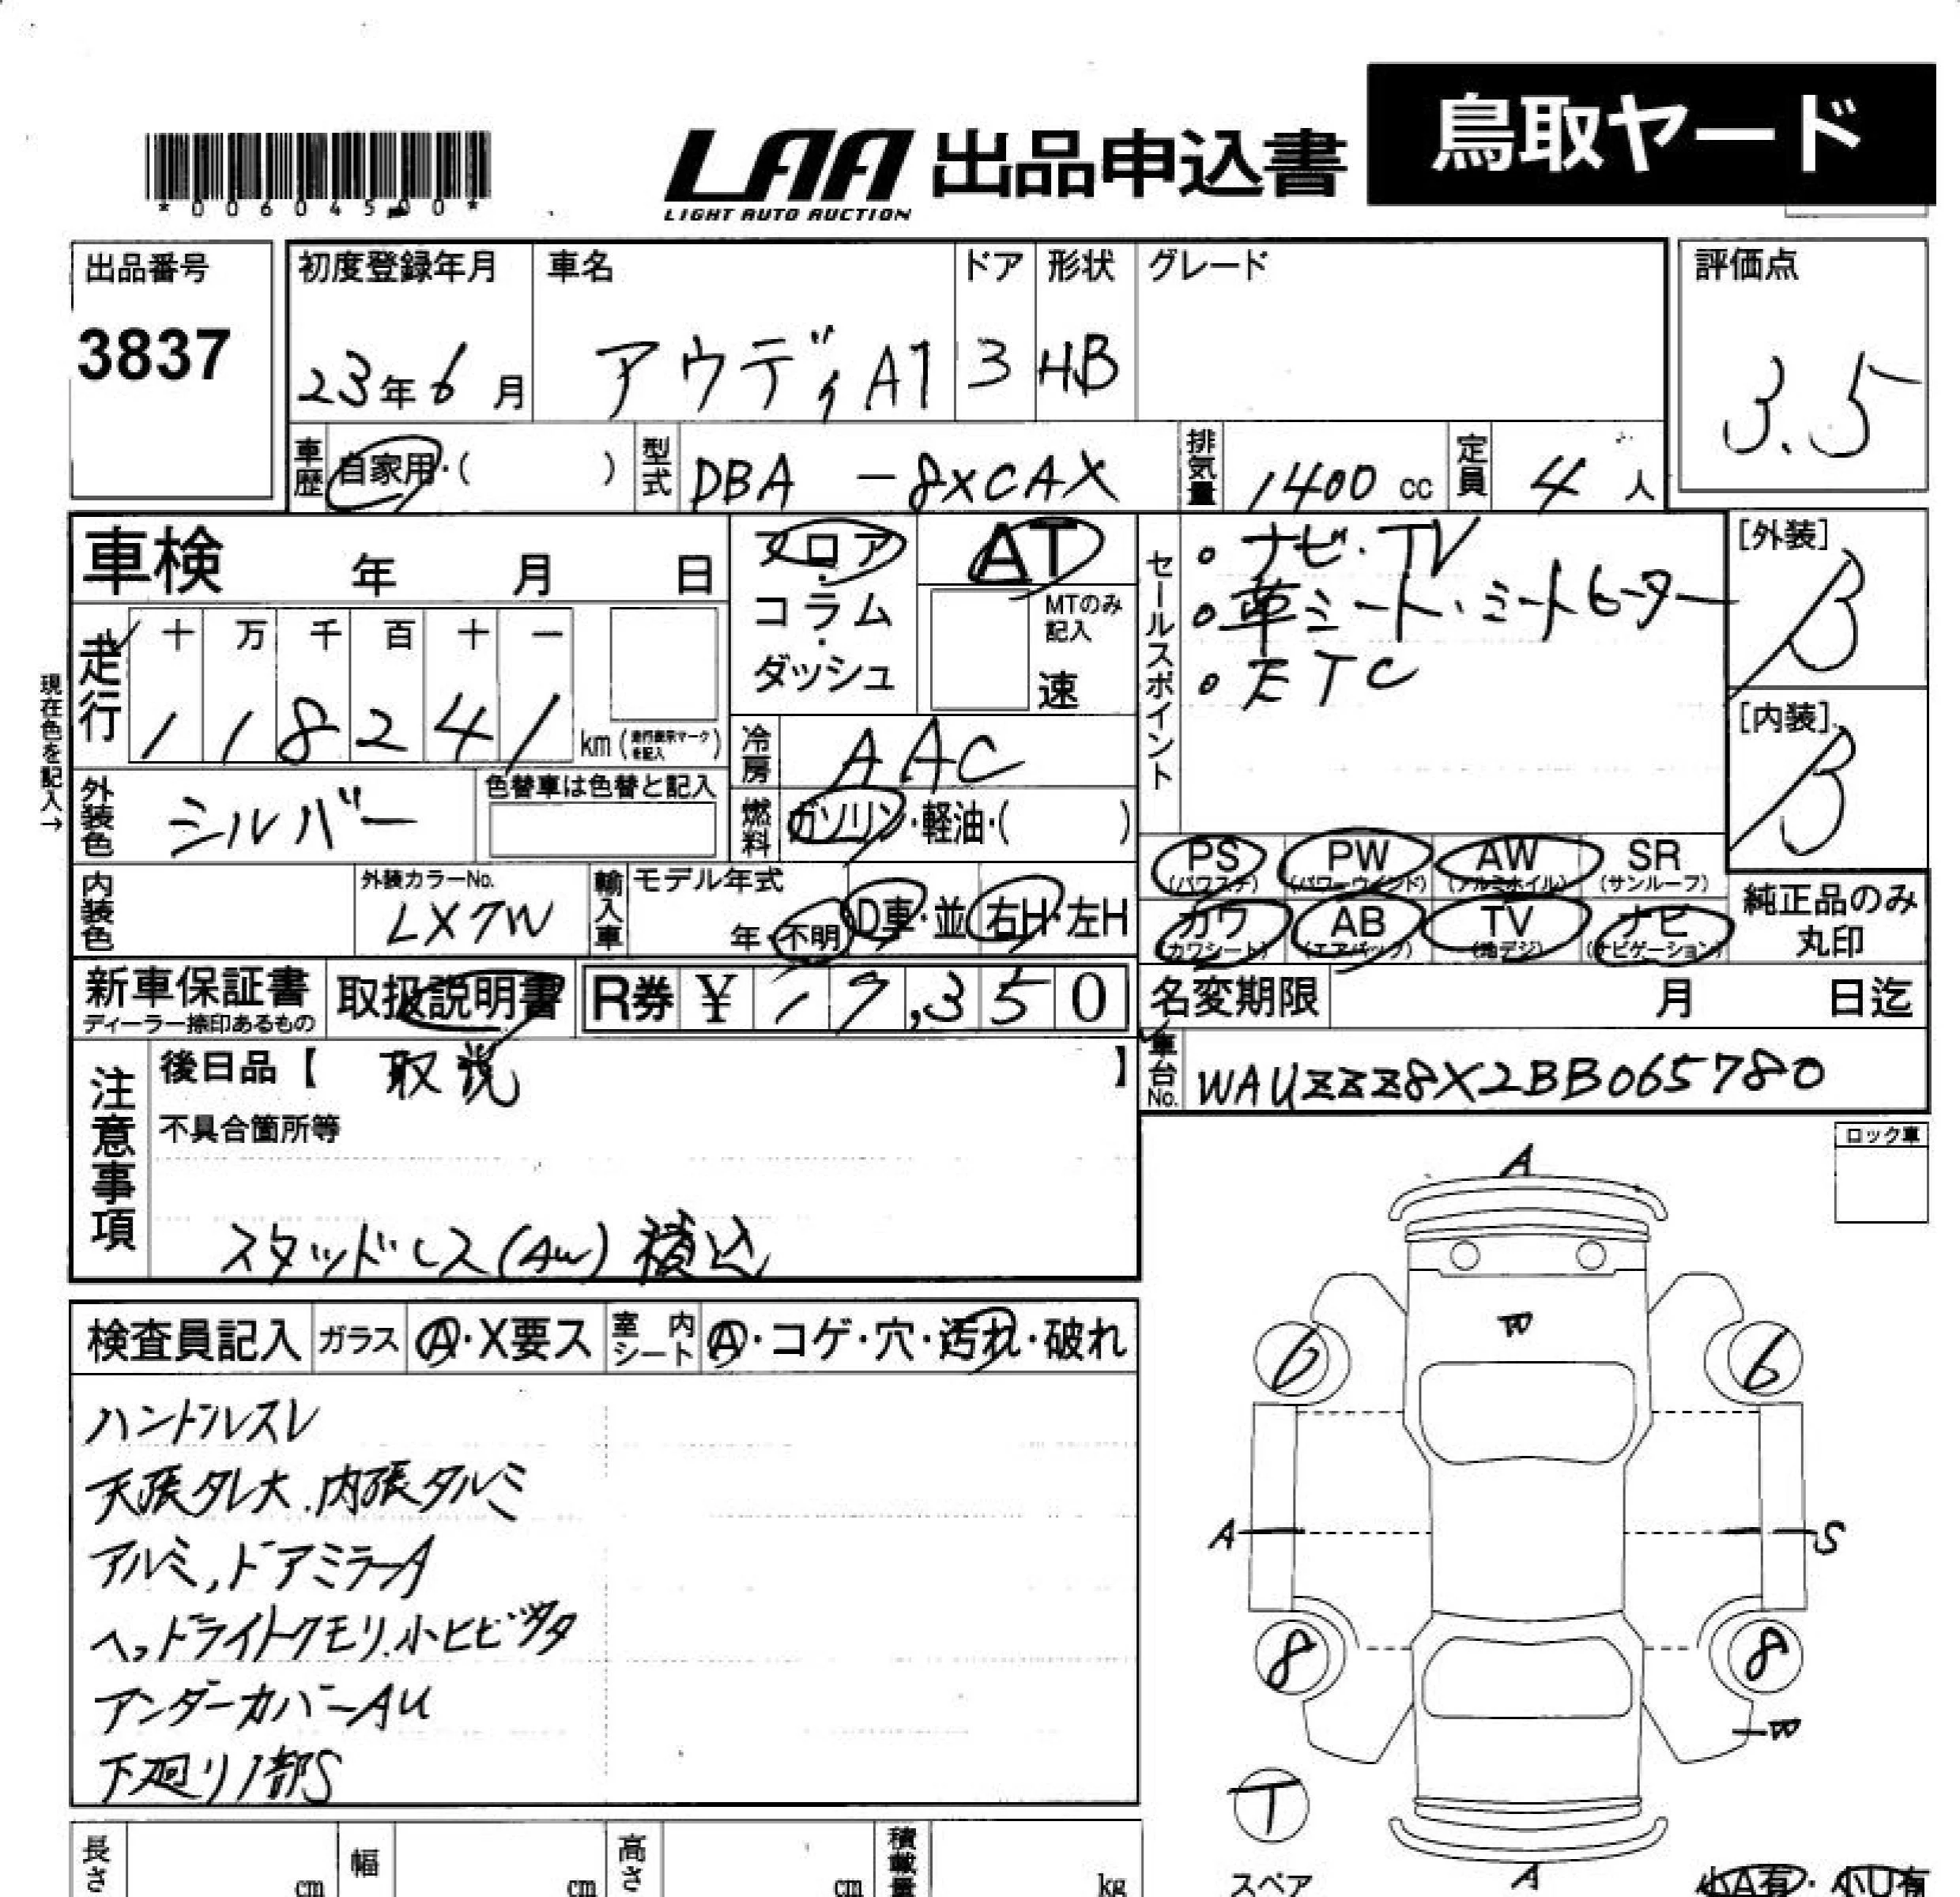 鳥取ヤード
LAA 出品申込書
LIGHT AUTO AUCTION
*00604500*
出品番号 初度登録年月 車名 ドア 形状 グレード 評価点
3837 23年6月 アウディA1 3 HB 3.5
車歴 自家用・( ) 型式 DBA -8XCAX 排気量 1400 cc 定員 4 人
車検 年 月 日 フロア・コラム・ダッシュ AT
MTのみ記入 速
セールスポイント
・ナビ・TV
・革シート、シートヒーター
・ETC
[外装] B
[内装] B
走行 十 万 千 百 十 一
118241 km (走行表示マークを記入)
現在色を記入→
冷房 AAC
外装色 シルバー 色替車は色替と記入
燃料 ガソリン・軽油・( )
PS (パワステ) PW (パワーウインド) AW (アルミホイル) SR (サンルーフ)
内装色 外装カラーNo. LX7W 輸入車 モデル年式 年・不明 D車・並 右H・左H
カワ (カワシート) AB (エアバッグ) TV (地デジ) ナビ (ナビゲーション)
純正品のみ丸印
新車保証書 ディーラー捺印あるもの 取扱説明書 R券 ¥ 17,350
名変期限 月 日迄
車台No. WAUZZZ8X2BB065780
注意事項
後日品【 取説 】
不具合箇所等
スタッドレス(AW) 積込
ロック車
検査員記入 ガラス A・X要ス 室内シート A・コゲ・穴・汚れ・破れ
ハンドルスレ
天張タレ大、内張タルミ
アルミ、ドアミラーA
ヘッドライトクモリ、小ヒビ
アンダーカバーAU
下廻り1部S
A
6 6
A S
8 8
T
スペア
A
小A有・小U有
長さ cm 幅 cm 高さ cm 積載量 kg